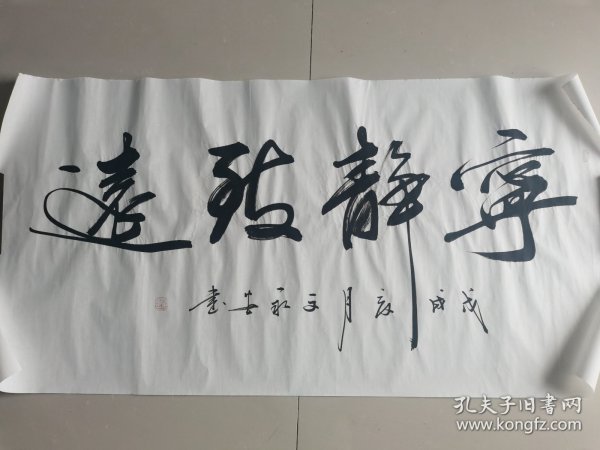 寧靜致遠
戊戌亥月文永生書
孔夫子旧書网
www.kongfz.com